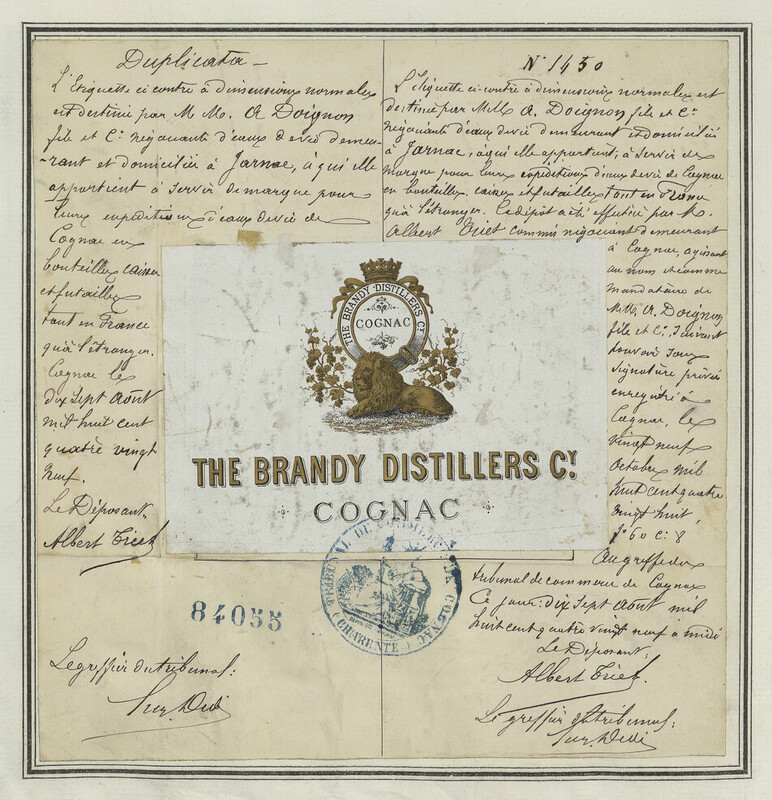 Duplicata
L'Etiquette ci contre à dimensions normales
est destiné par M Mrs. A Doignon
fils et Cie négociants d'eaux de vie demeu-
-rant et domiciliés à Jarnac, à qui elle
appartient à servir de marque pour
leurs expéditions d'eaux de vie de
Cognac en
bouteilles caisses
et futailles
tant en France
qu'à l'étranger.
Cognac le
dix sept Août
mil huit cent
quatre vingt
neuf.
Le Déposant.
Albert Triet
84055
Le greffier du tribunal:
N° 1430
L'Etiquette ci-contre à dimensions normales est
destinée par MM A. Doignon fils et Cie
négociants d'eaux de vie demeurant et domiciliés
à Jarnac, à qui elle appartient, à servir de
marque pour leurs expéditions d'eaux de vie de Cognac
en bouteilles, caisses et futailles tant en France
qu'à l'étranger. Le dépôt a été effectué par M.
Albert Triet commis négociant demeurant
à Cognac, agissant
au nom et comme
mandataire de
MM A. Doignon
fils et Cie. Suivant
pouvoir sous
signature privée
enregistré à
Cognac, le
vingt neuf
Octobre mil
huit cent quatre
vingt huit,
fo 60 c. 8
Au greffe du
tribunal de commerce de Cognac
Ce jour: dix sept Août mil
huit cent quatre vingt neuf à midi
Le Déposant:
Albert Triet.
Le greffier du tribunal:
THE BRANDY DISTILLERS CY
COGNAC
THE BRANDY DISTILLERS CY.
COGNAC
TRIBUNAL DE COMMERCE DE COGNAC
(CHARENTE)